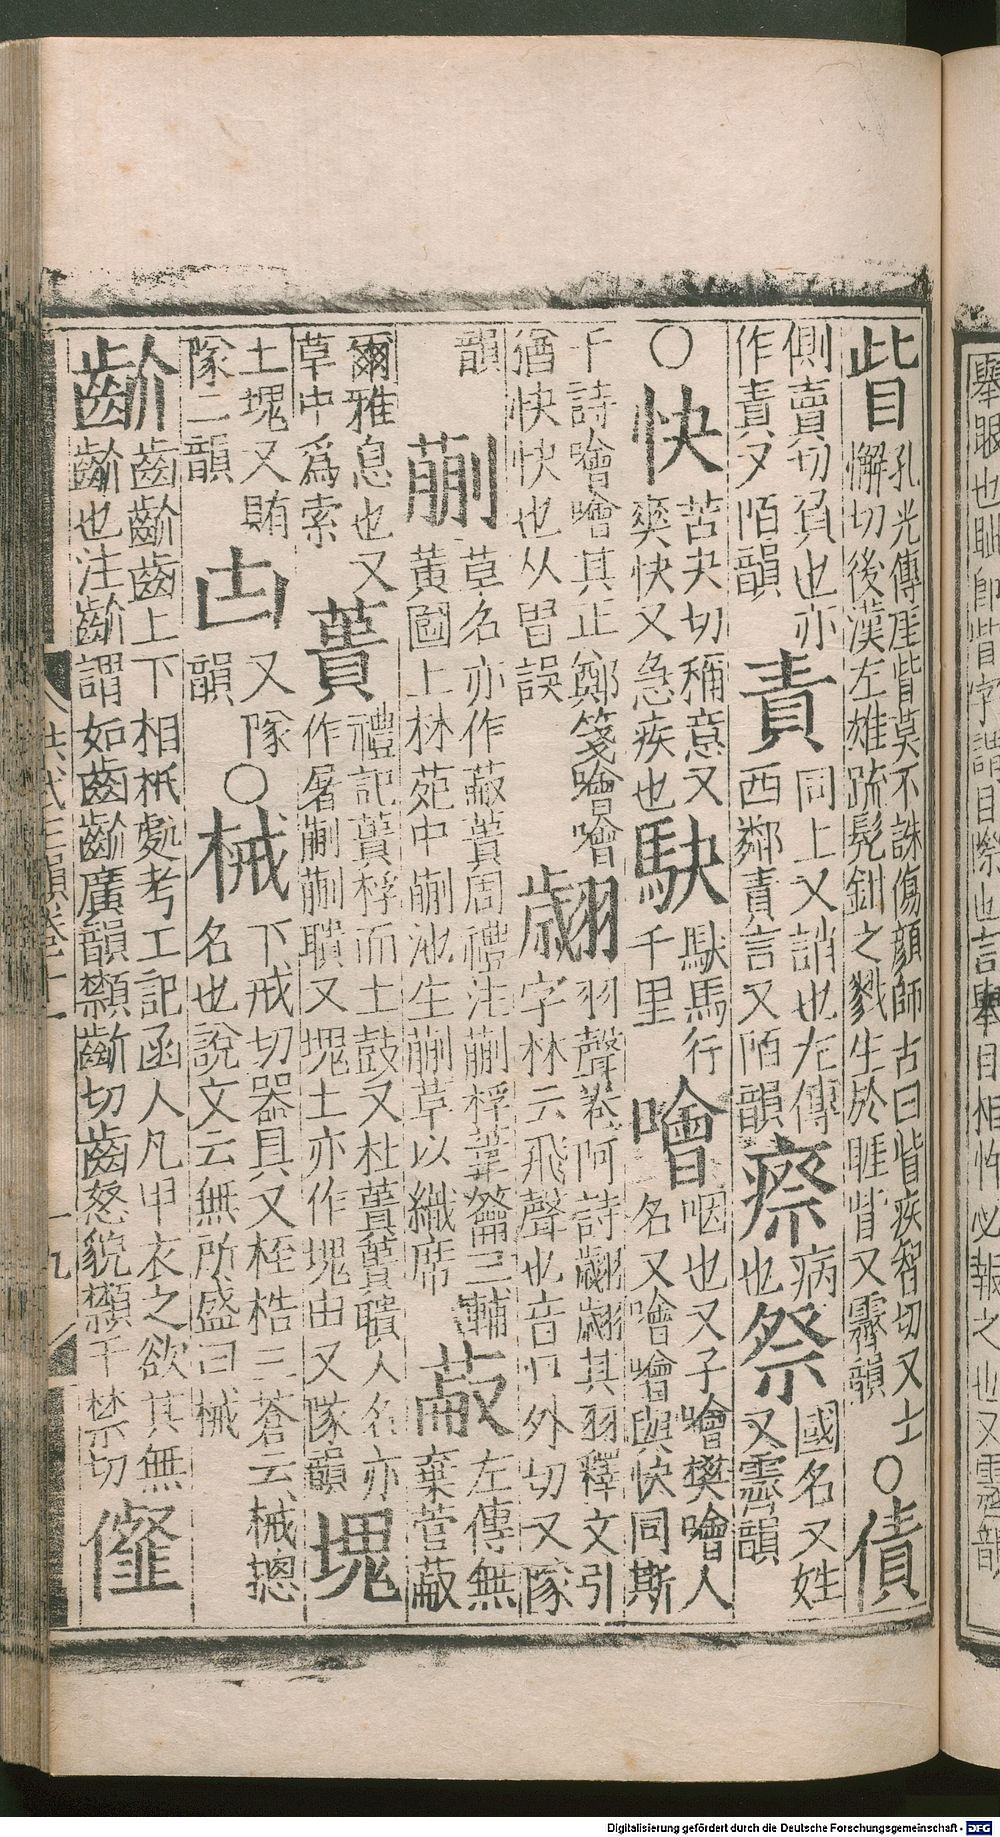 舉眼也即眥字謂目際也言舉目相忤必報之也又霽韻
眥 孔光傳厓眥莫不誅傷顔師古曰眥疾智切又士懈切後漢左雄疏髡鉗之戮生於睚眥又霽韻 ○債
側賣切負也亦作責又陌韻 責 同上又誚也左傳西鄰責言又陌韻 瘵 病也 祭 國名又姓又霽韻
○快 苦夬切稱意又爽快又急疾也 駃 駃馬行千里 噲 咽也又子噲樊噲人名又噲噲與快同斯
干詩噲噲其正鄭箋噲噲猶快快也从冒誤 翽 羽聲卷阿詩翽翽其羽釋文引字林云飛聲也音口外切又隊
韻 蒯 草名亦作蕢周禮注蒯桴葦籥三輔黃圖上林苑中蒯池生蒯草以織席 蔽 左傳無棄菅蔽
爾雅息也又草中爲索 蕢 禮記蕢桴而土鼓又杜蕢蕢聵人名亦作屠蒯蒯聵又塊土亦作塊由又隊韻 塊
土塊又賄隊二韻 凷 又隊韻 ○械 下戒切器具又桎梏三蒼云械摠名也說文云無所盛曰械
齘 齒齘齒上下相柢處考工記函人凡甲衣之欲其無齘也注齘謂如齒齘廣韻齘切齒怒貌千禁切
洪武正韻卷十一 十九
Digitalisierung gefördert durch die Deutsche Forschungsgemeinschaft - DFG